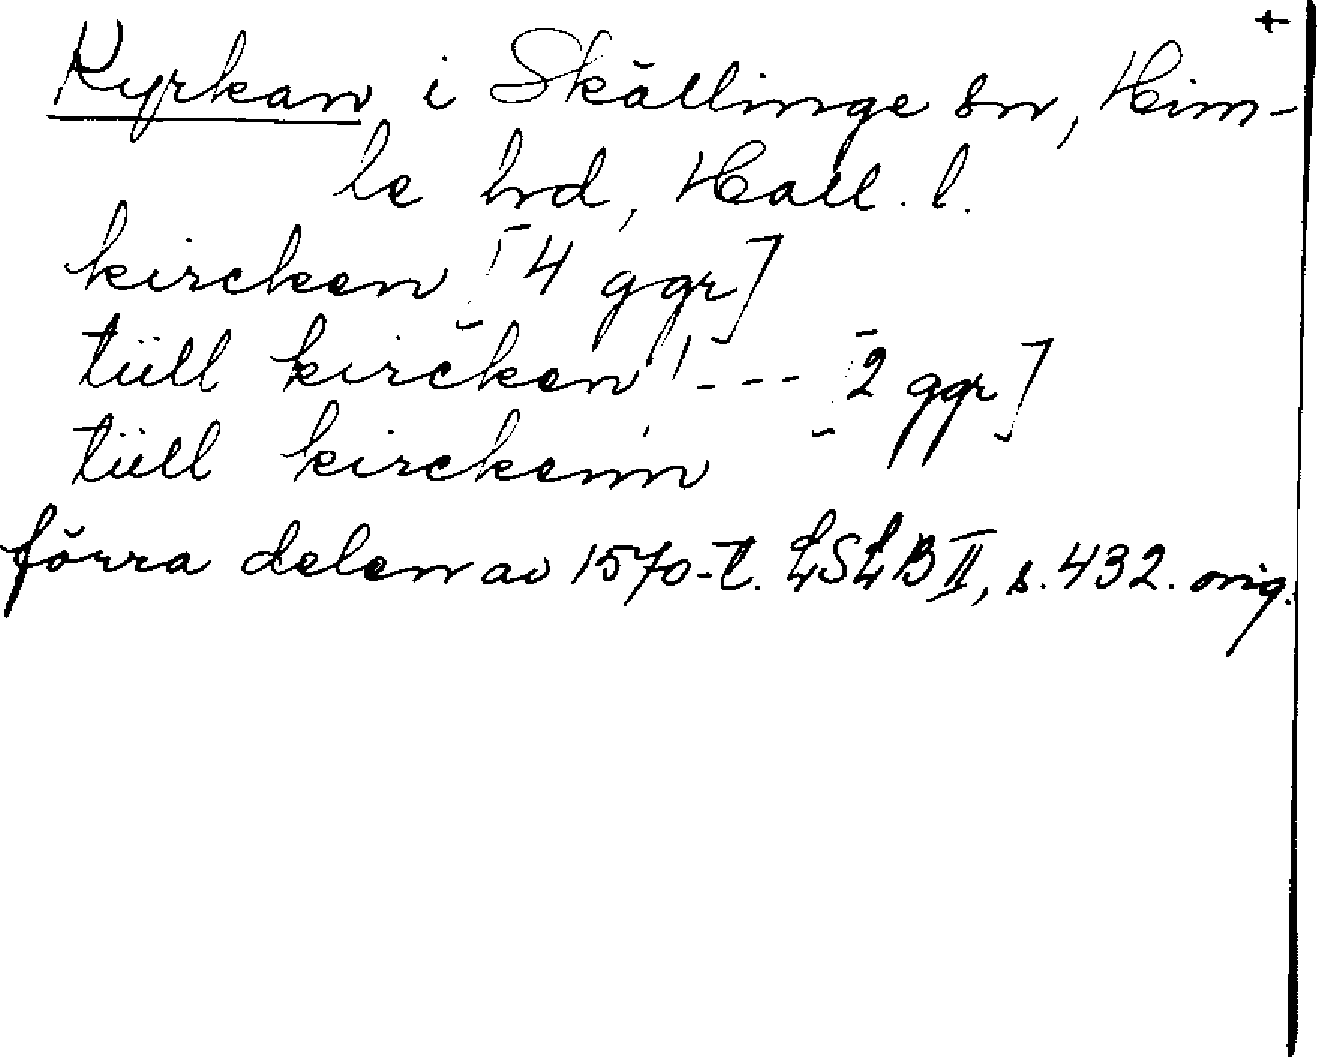 +
Kyrkan i Skällinge sn, Him-
le hrd, Hall. l.
kircken [4 ggr]
tüll kircken --- [2 ggr]
tüll kirckenn
förra delen av 1570-t. LSLB II, s. 432. orig.